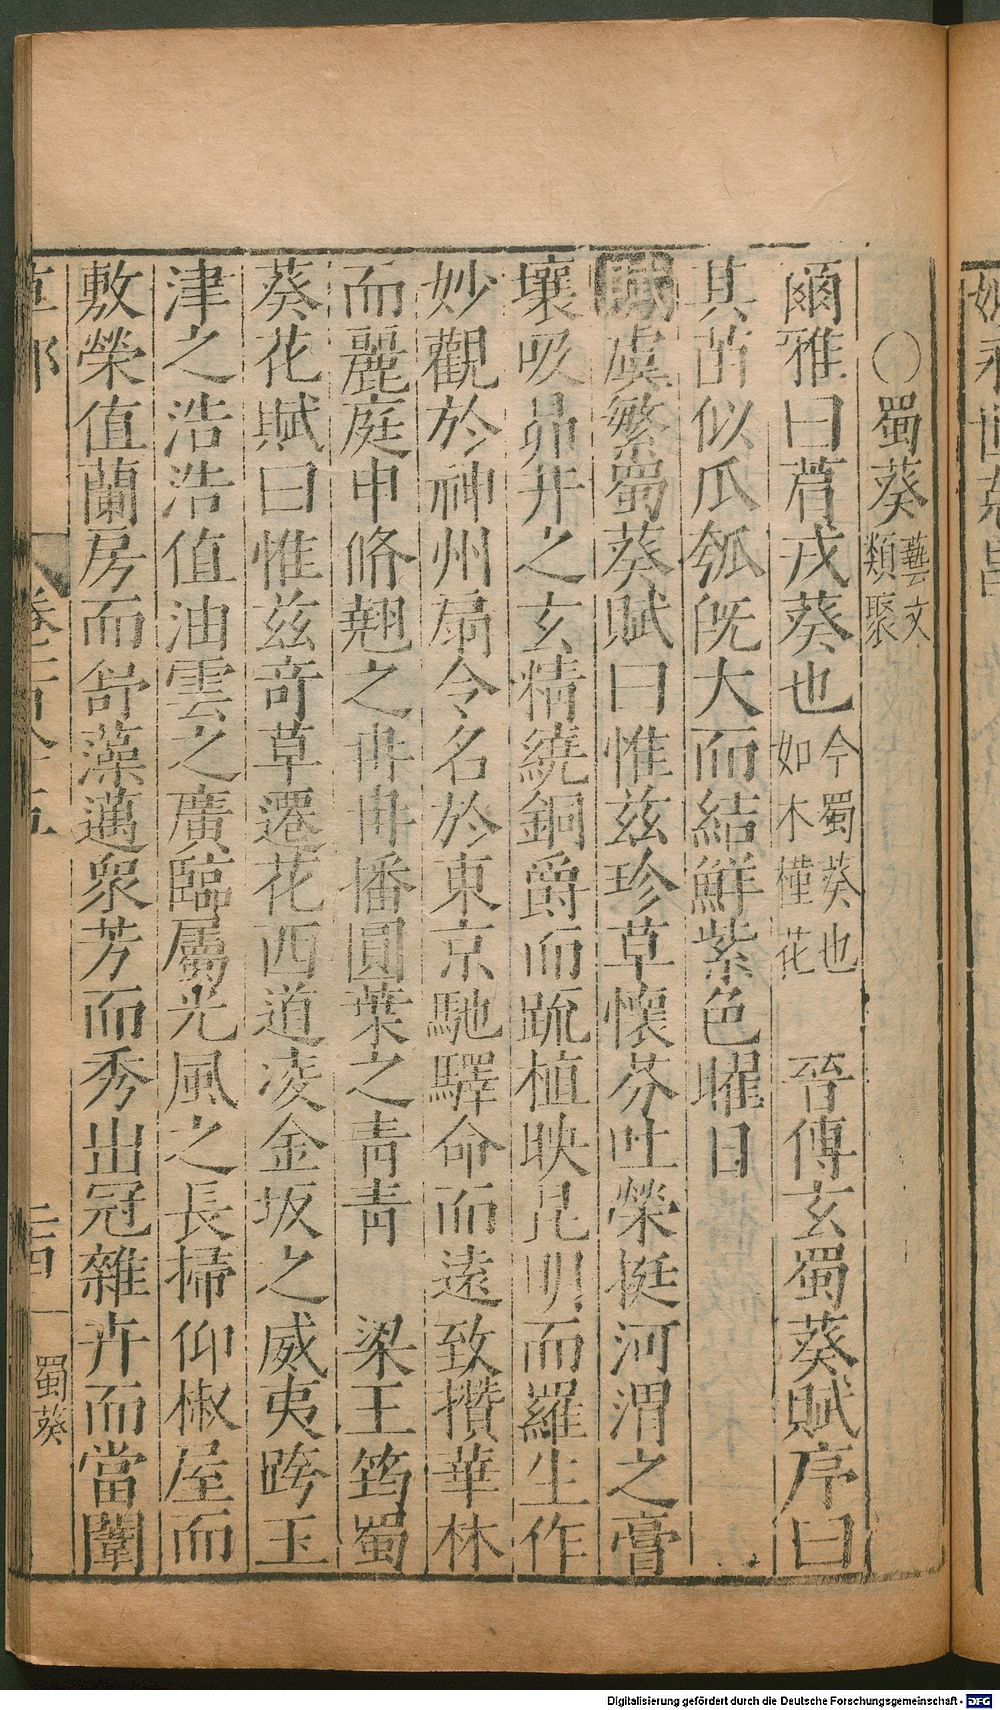 〇蜀葵藝文類聚
爾雅曰菺戎葵也今蜀葵也如木槿花 晉傳玄蜀葵賦序曰
其苗似瓜瓠旣大而結鮮紫色曜日
賦虞繁蜀葵賦曰惟茲珍草懷芬吐榮挺河渭之膏
壤吸昴井之玄精繞銅爵而疏植映昆明而羅生作
妙觀於神州扇令名於東京馳驛命而遠致攢華林
而麗庭申脩翹之冉冉播圓葉之靑靑 梁王筠蜀
葵花賦曰惟茲奇草遷花西道凌金坂之威夷跨玉
津之浩浩值油雲之廣臨屬光風之長掃仰椒屋而
敷榮值蘭房而舒藻邁衆芳而秀出冠雜卉而當闈
草部 卷一百八十五 二四 蜀葵
Digitalisierung gefördert durch die Deutsche Forschungsgemeinschaft - DFG